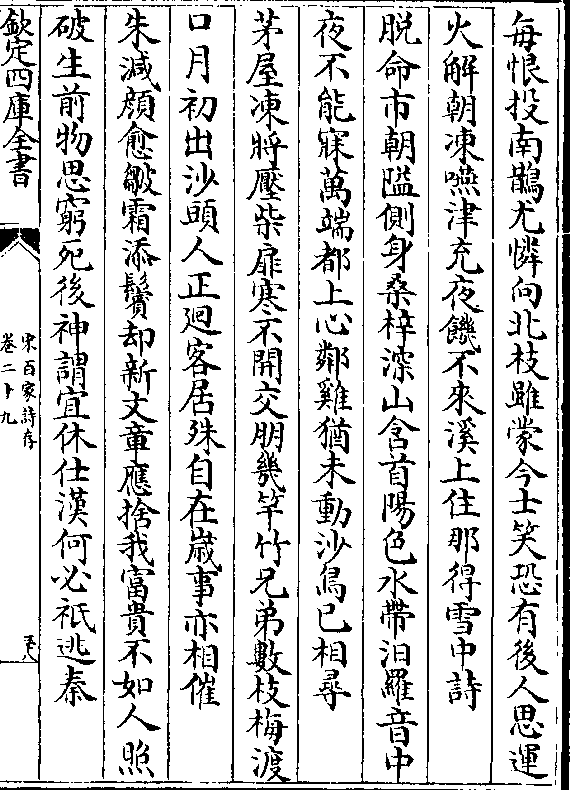 每恨投南鵲尤憐向北枝雖蒙今士笑恐有後人思運
火解朝凍嚥津充夜饑不來溪上住那得雪中詩
脱命市朝隘側身桑梓深山含首陽色水帶汨羅音中
夜不能寐萬端都上心鄰雞猶未動沙鳥已相尋
茅屋凍將壓柴扉寒不開交朋幾竿竹兄弟數枝梅渡
口月初出沙頭人正廻客居殊自在歲事亦相催
朱減顔愈皺霜添鬢却新文章應捨我富貴不如人照
破生前物思窮死後神謂宜休仕漢何必祇逃秦
欽定四庫全書
宋百家詩存
卷二十九